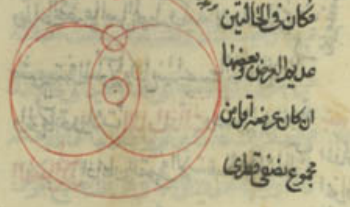 فكان في الحالتين
عديم العرض وبعضها
ان كان عرضه اقل من
مجموع نصفي قطري